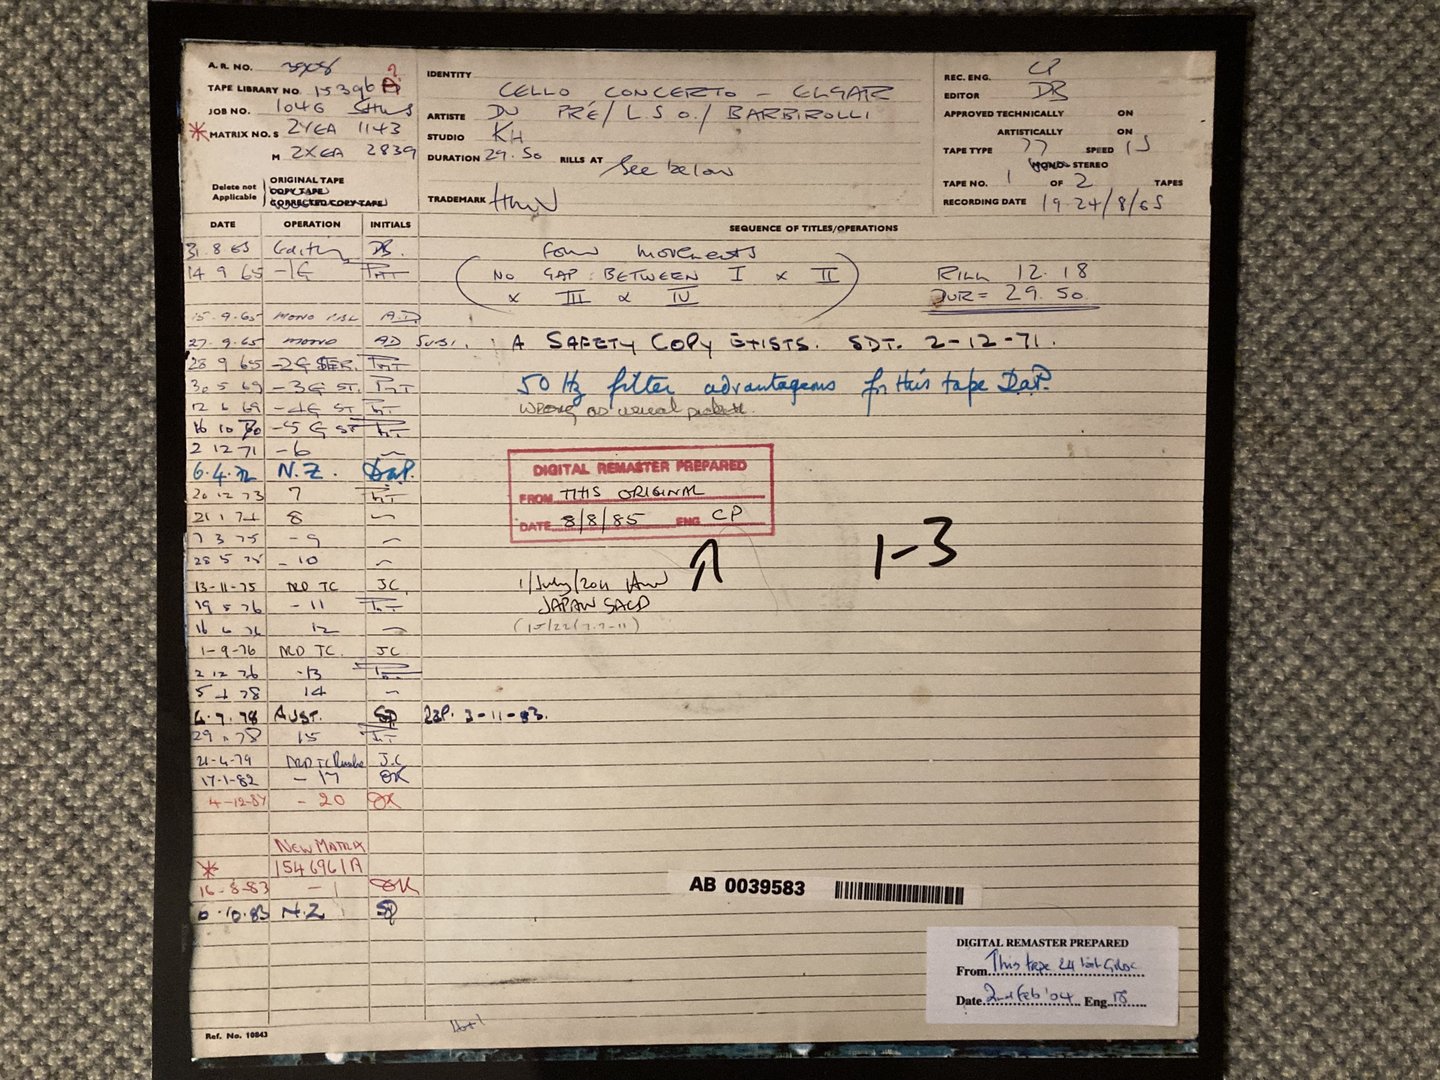 A.R. NO. 3908
TAPE LIBRARY NO. 15396
JOB NO. 1046
* MATRIX NO. S 2YEA 1143
M 2XEA 2839
Delete not Applicable
ORIGINAL TAPE
COPY TAPE
CORRECTED COPY TAPE
IDENTITY CELLO CONCERTO – ELGAR
ARTISTE DU PRÉ / L.S.O. / BARBIROLLI
STUDIO KH
DURATION 29.50 RILLS AT See below
TRADEMARK HMV
REC. ENG. CP
EDITOR DB
APPROVED TECHNICALLY ON
ARTISTICALLY ON
TAPE TYPE 77 SPEED 15
MONO- STEREO
TAPE NO. 1 OF 2 TAPES
RECORDING DATE 19.24/8/65
DATE OPERATION INITIALS SEQUENCE OF TITLES/OPERATIONS
31 8 65 DB. Four movements
14 9 65 -1G (NO GAP: BETWEEN I & II RILL 12.18
& III & IV) DUR= 29.50
15.9.65 MONO A.D.
27.9.65 MONO AD A SAFETY COPY EXISTS. SDT. 2-12-71.
28 9 65 -2G
30 5 69 -3G ST. 50 Hz filter advantageous for this tape DaP.
12 6 69 -4G ST Wrong as usual
16 10 70 -5 G ST
2 12 71 -6
6.4.72 N.Z. DaP.
DIGITAL REMASTER PREPARED
FROM THIS ORIGINAL
DATE 8/8/85 ENG CP
20 12 73 7
21 1 74 8
7 3 75 -9
1-3
28 5 75 -10
13-11-75 TC JC 1/July/2011
19 5 76 -11 JAPAN SACD
16 6 76 12
1-9-76 TC. JC
2 12 76 -13
5 4 78 14
6.7.78 AUST. 3-11-83.
29 78 15
21-4-79 TC J.C
17-1-82 -17 OK
4-12-84 -20 OK
NEW MATRIX
* 1546961A
16-8-83 -1 OK
10.83 N.Z
AB 0039583
DIGITAL REMASTER PREPARED
From This tape 24 bit
Date 2nd Feb '04 Eng
Ref. No. 10843